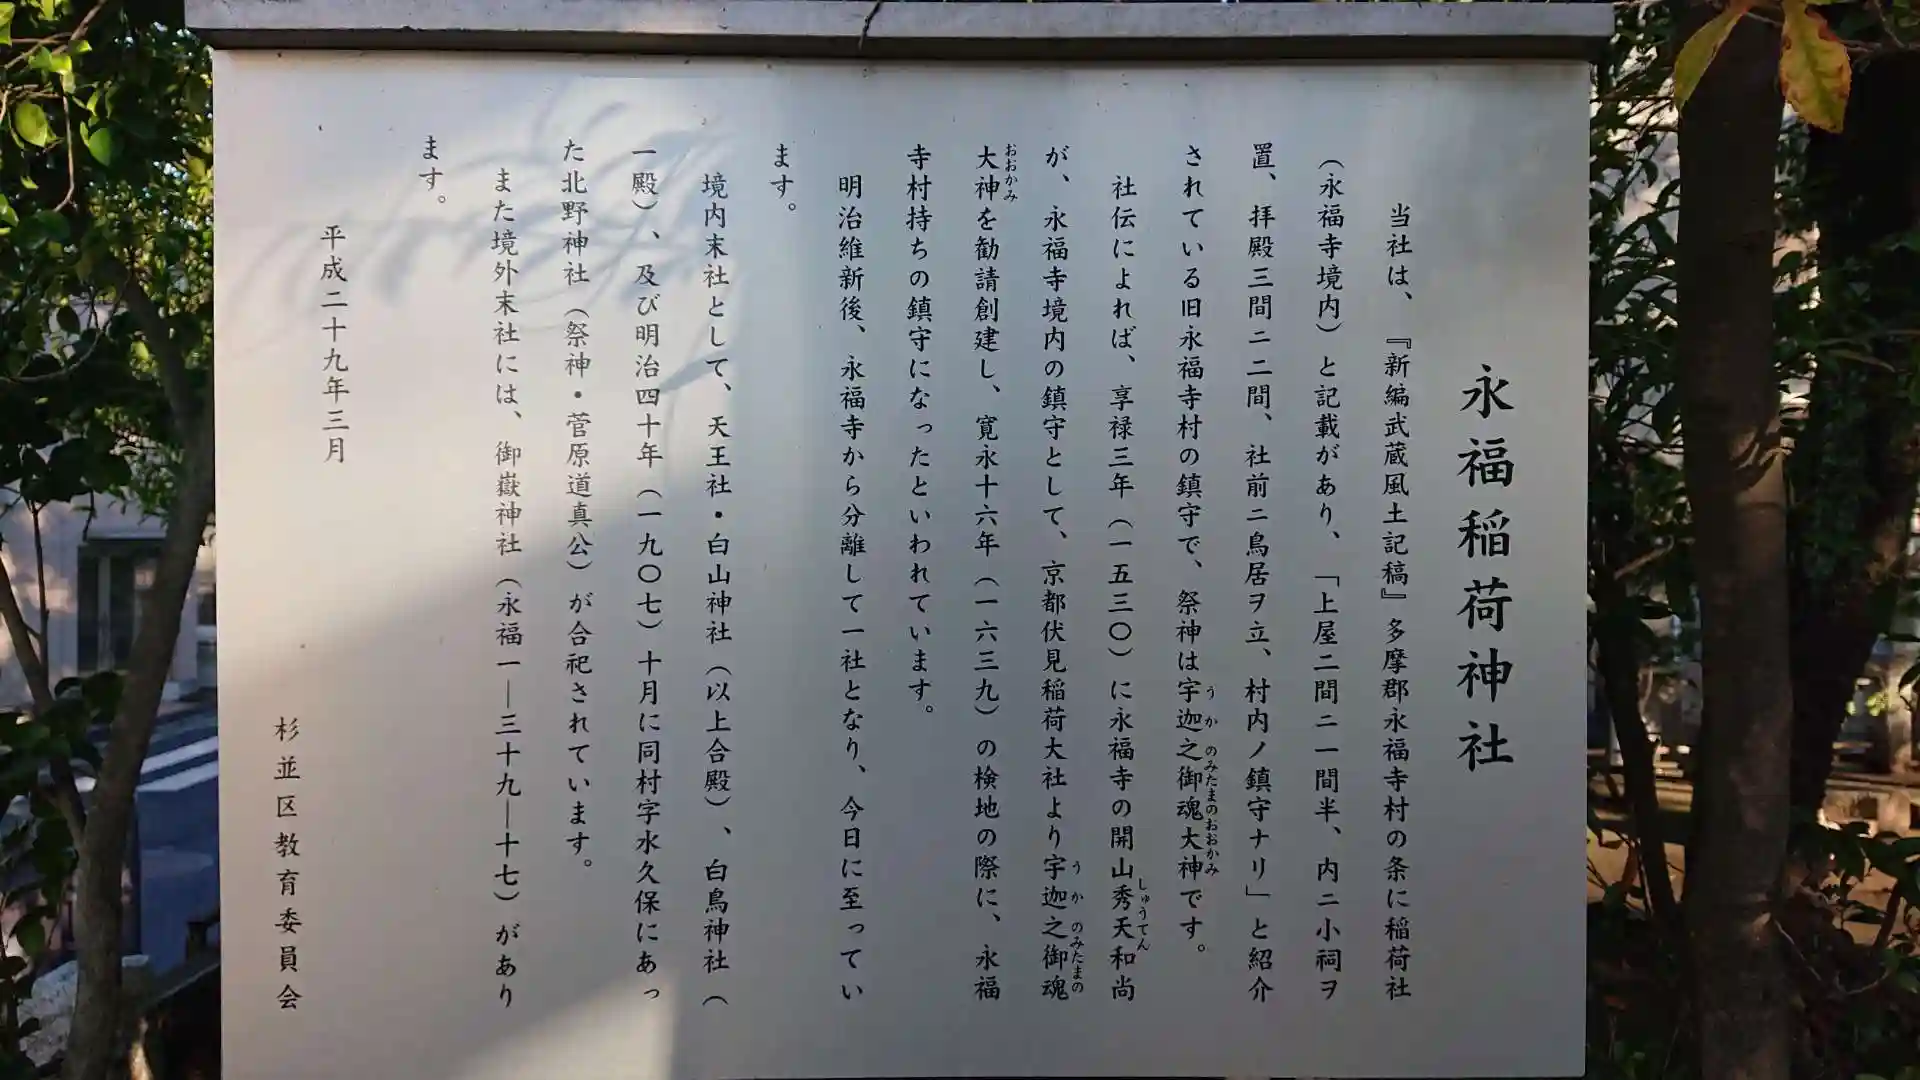 永福稲荷神社
当社は、『新編武蔵風土記稿』多摩郡永福寺村の条に稲荷社
（永福寺境内）と記載があり、「上屋二間ニ一間半、内ニ小祠ヲ
置、拝殿三間ニ二間、社前ニ鳥居ヲ立、村内ノ鎮守ナリ」と紹介
されている旧永福寺村の鎮守で、祭神は宇迦之御魂大神です。
うかのみたまのおおかみ
社伝によれば、享禄三年（一五三〇）に永福寺の開山秀天和尚
しゅうてん
が、永福寺境内の鎮守として、京都伏見稲荷大社より宇迦之御魂
うかのみたまの
大神を勧請創建し、寛永十六年（一六三九）の検地の際に、永福
おおかみ
寺村持ちの鎮守になったといわれています。
明治維新後、永福寺から分離して一社となり、今日に至ってい
ます。
境内末社として、天王社・白山神社（以上合殿）、白鳥神社（
一殿）、及び明治四十年（一九〇七）十月に同村字水久保にあっ
た北野神社（祭神・菅原道真公）が合祀されています。
また境外末社には、御嶽神社（永福一―三十九―十七）があり
ます。
平成二十九年三月
杉並区教育委員会